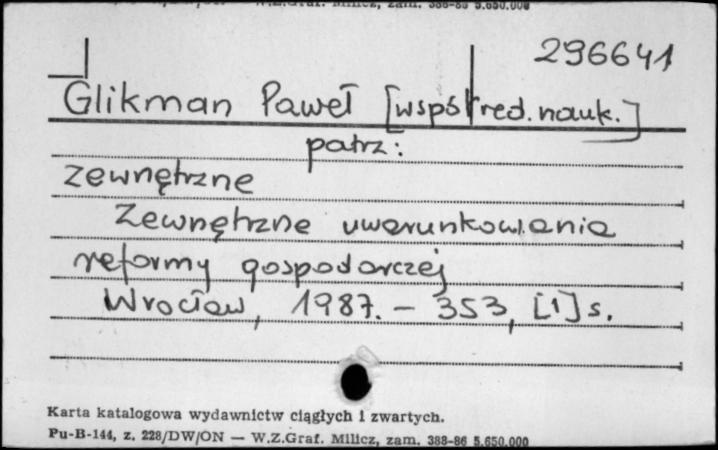 W.Z.Graf. Milicz, zam. 388-86 5.650.000
296641
Glikman Paweł [współred. nauk.]
patrz:
Zewnętrzne
Zewnętrzne uwarunkowania
reformy gospodarczej
Wrocław, 1987. – 353, [1] s.
Karta katalogowa wydawnictw ciągłych i zwartych.
Pu-B-144, z. 228/DW/ON — W.Z.Graf. Milicz, zam. 388-86 5.650.000